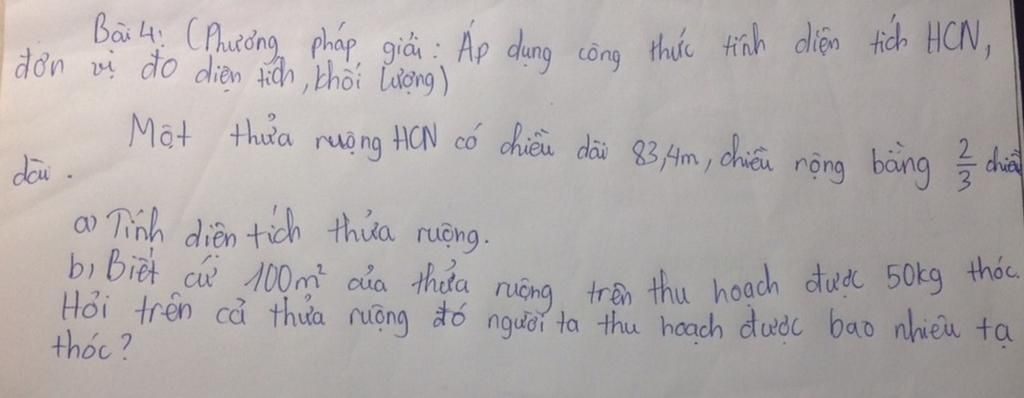 Bài 4: (Phương pháp giải: Áp dụng công thức tính diện tích HCN,
đơn vị đo diện tích, khối lượng)
Một thửa ruộng HCN có chiều dài 83,4m, chiều rộng bằng 2/3 chiều
dài.
a) Tính diện tích thửa ruộng.
b) Biết cứ 100m² của thửa ruộng trên thu hoạch được 50kg thóc.
Hỏi trên cả thửa ruộng đó người ta thu hoạch được bao nhiêu tạ
thóc?